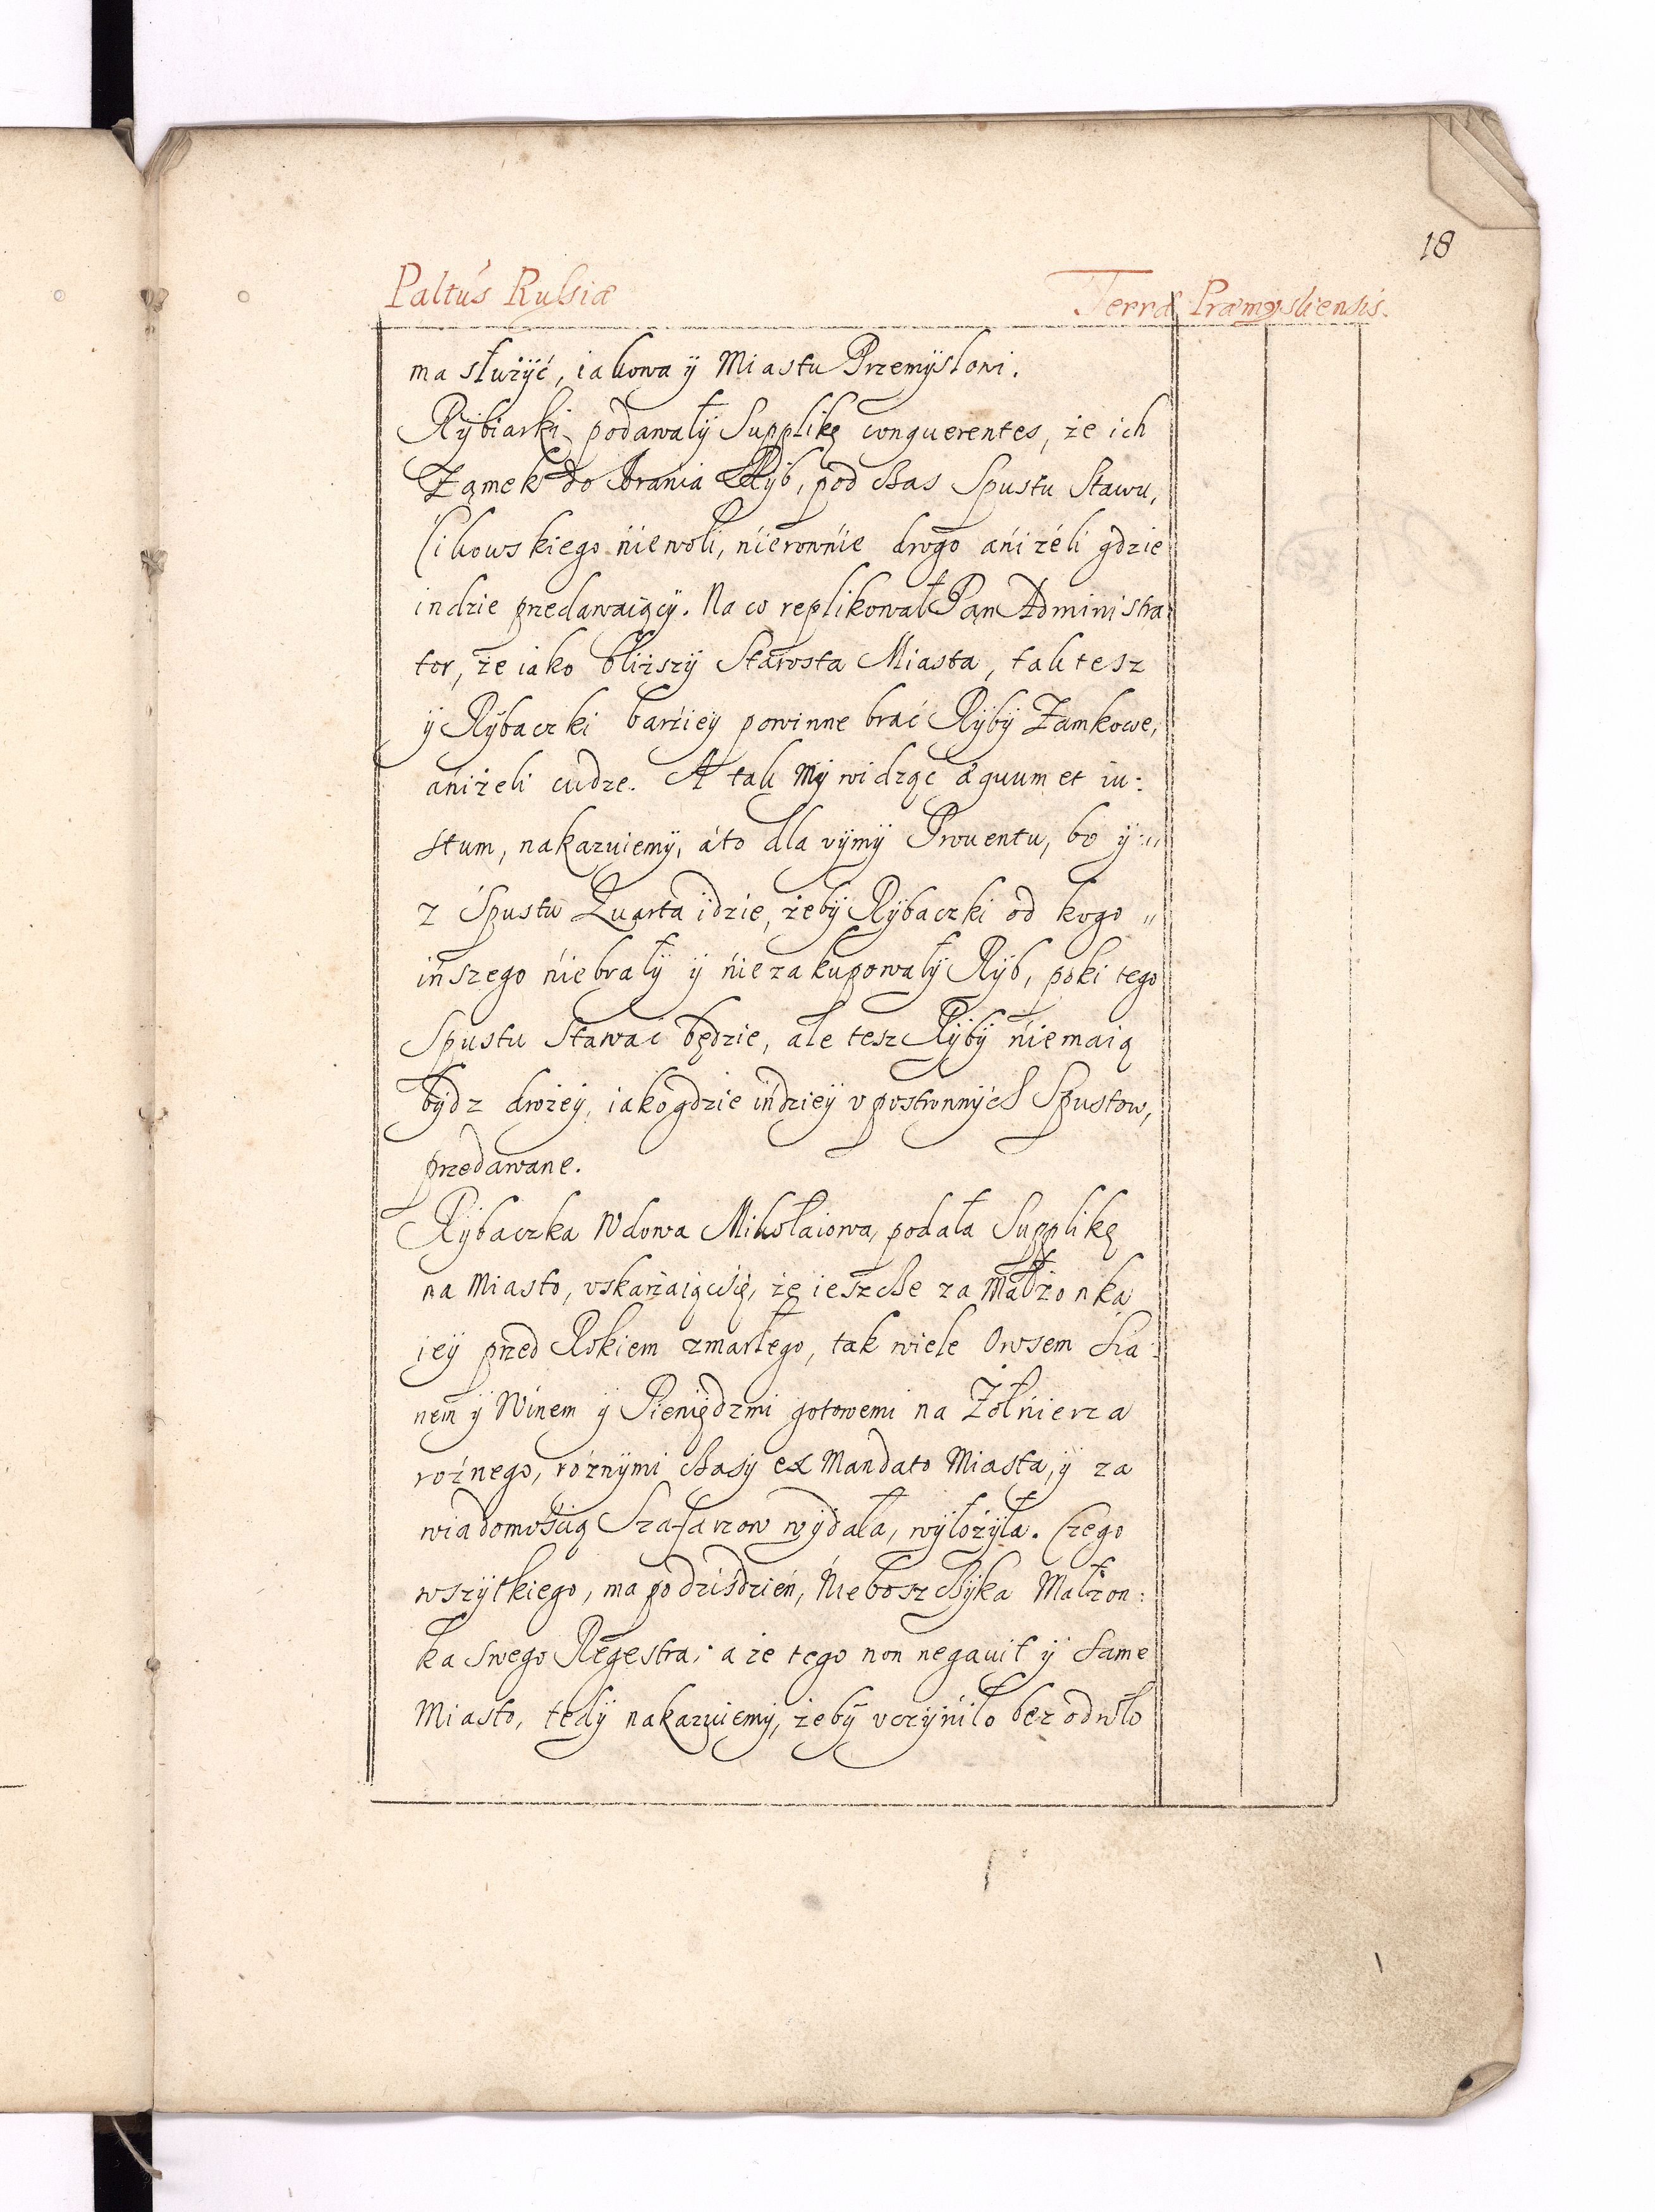 18
Paltus Russiæ Terræ Præmysliensis.
ma służyć, iakowa ÿ Miastu Przemyslowi.
Rÿbiarki podawałÿ Supplikę conquerentes, że ich
Zamek do brania Rÿb, pod czas Spustu Stawu,
Cikowskiego niewoli, nierownie drogo ániżéli gdzie
indzie przedawaiącÿ. Na co replikował Pan Administra:
tor, że iako bliższÿ Starosta Miasta, tak tesz
ÿ Rÿbaczki barźieÿ powinne brać Rÿbÿ Zamkowe,
ániżeli cudze. A tak Mÿ widząc æquum et iu:
stum, nakazuiemÿ, áto dla vÿmÿ Prouentu, bo ÿ:,,
z Spustu Quarta idzie, żebÿ Rÿbaczki od kogo „
inszego niebrałÿ ÿ niezakupowałÿ Rÿb, poki tego
Spustu Stawać będzie, ale tesz Rÿbÿ niemaią
bÿdz drożéÿ, iako gdzie indzieÿ v postronnÿch Spustow,
przedawane.
Rÿbaczka Wdowa Mikołaiowa, podała Supplikę
na Miasto, vskarżaiącsię, że ieszcze za Małżonka
ieÿ przed Rokiem zmarłego, tak wiele Owsem Sia:
nem ÿ Winem ÿ Pieniędzmi gotowemi na Żołnierza
rożnego, rożnÿmi czasÿ ex Mandato Miasta, ÿ za
wiadomością Szafarzow wÿdała, wÿłożÿła. Czego
wszÿtkiego, ma po dziśdzień, Nieboszczÿka Małżon:
ka swego Regestra, a że tego non negauit ÿ same
Miasto, tedÿ nakazuiemÿ, żebÿ vczÿniło bez odwło